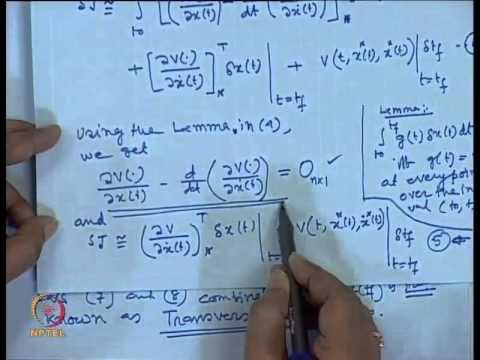 δJ ≅ ∫ [ ( ∂V(·)/∂x(t) - d/dt ( ∂V(·)/∂ẋ(t)
t0
+ [∂V(·)/∂ẋ(t)]ᵀ* δx(t) | t=tf + V(t, x*(t), ẋ*(t)) | t=tf δtf
Using the Lemma, in (4),
we get
∂V(·)/∂x(t) - d/dt (∂V(·)/∂ẋ(t)) = 0 n×1 ✓
and
δJ ≅ (∂V/∂ẋ(t))ᵀ* δx(t) | t= V(t, x*(t), ẋ*(t)) | t=tf δtf
Lemma:-
∫ g(t) δx(t) dt
t0
iff g(t) =
at every point
over the in
val (t0, t
(5)
(7) and (8) combine
known as Transvers
NPTEL